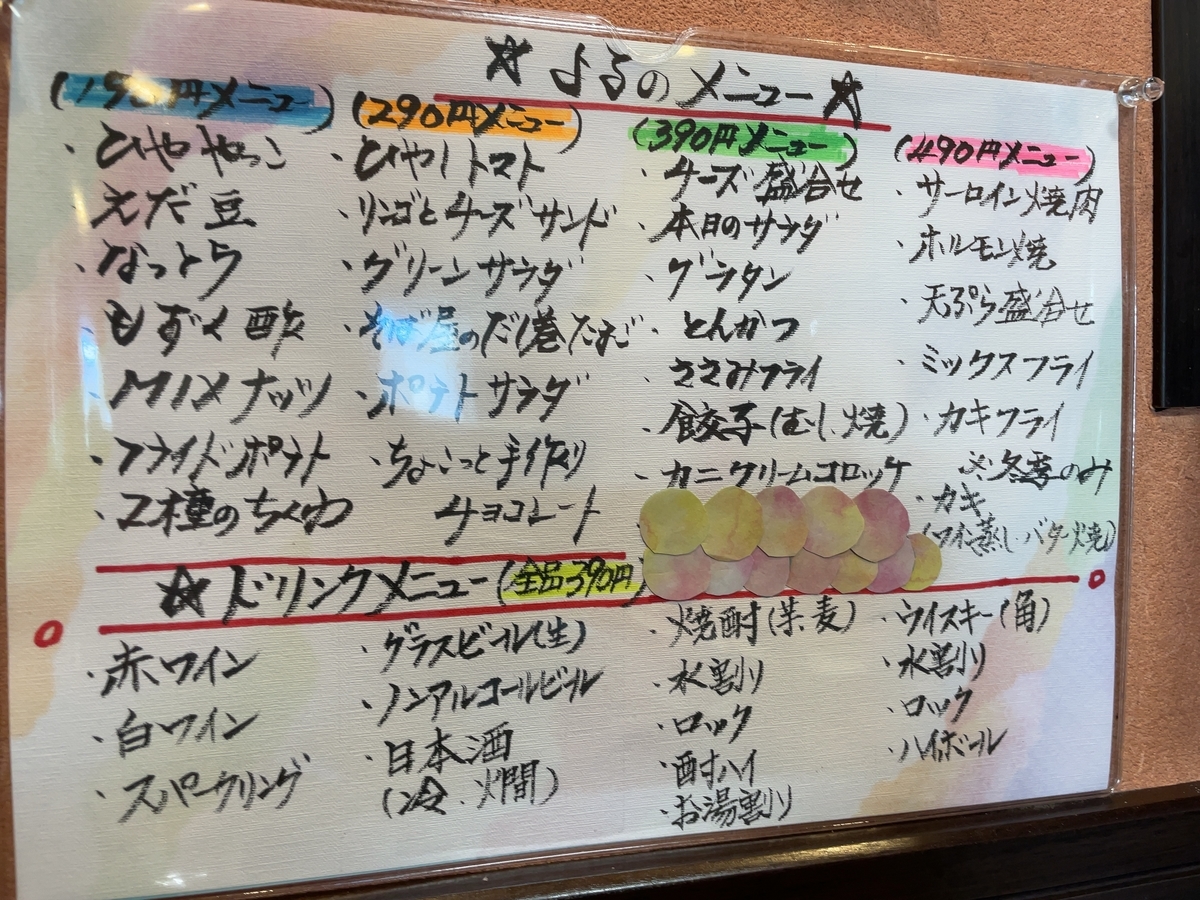 ☆よるのメニュー☆
(190円メニュー)
・ひややっこ
えだ豆
・なっとう
・もずく酢
・MIXナッツ
・フライドポテト
・2種のちくわ
(290円メニュー)
・ひやしトマト
・リンゴとチーズサンド
・グリーンサラダ
・そば屋のだし巻たまご
・ポテトサラダ
・ちょこっと手作り
チョコレート
(390円メニュー)
・チーズ盛合せ
・本日のサラダ
・グラタン
・とんかつ
・ささみフライ
・餃子(むし.焼)
・カニクリームコロッケ
(490円メニュー)
・サーロイン焼肉
・ホルモン焼
・天ぷら盛合せ
・ミックスフライ
・カキフライ
※冬季のみ
・カキ
(ワイン蒸し.バター焼)
☆ドリンクメニュー(全品390円)
・赤ワイン
・白ワイン
・スパークリング
・グラスビール(生)
・ノンアルコールビール
・日本酒
(冷.燗)
・焼酎(芋.麦)
・水割り
・ロック
・酎ハイ
・お湯割り
・ウイスキー(角)
・水割り
・ロック
・ハイボール